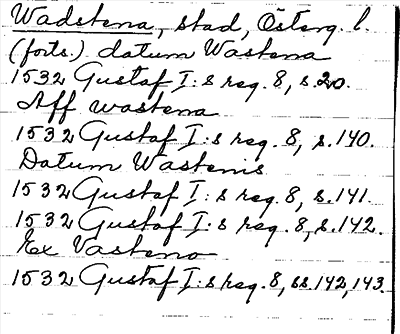 Wadstena, stad, Österg. l.
(forts.) datum Wastena
1532 Gustaf I:s reg. 8, s. 20.
Aff wastena
1532 Gustaf I:s reg. 8, s. 140.
Datum Wastenis
1532 Gustaf I:s reg. 8, s. 141.
1532 Gustaf I:s reg. 8, s. 142.
Ex Vasteno
1532 Gustaf I:s reg. 8, ss. 142, 143.